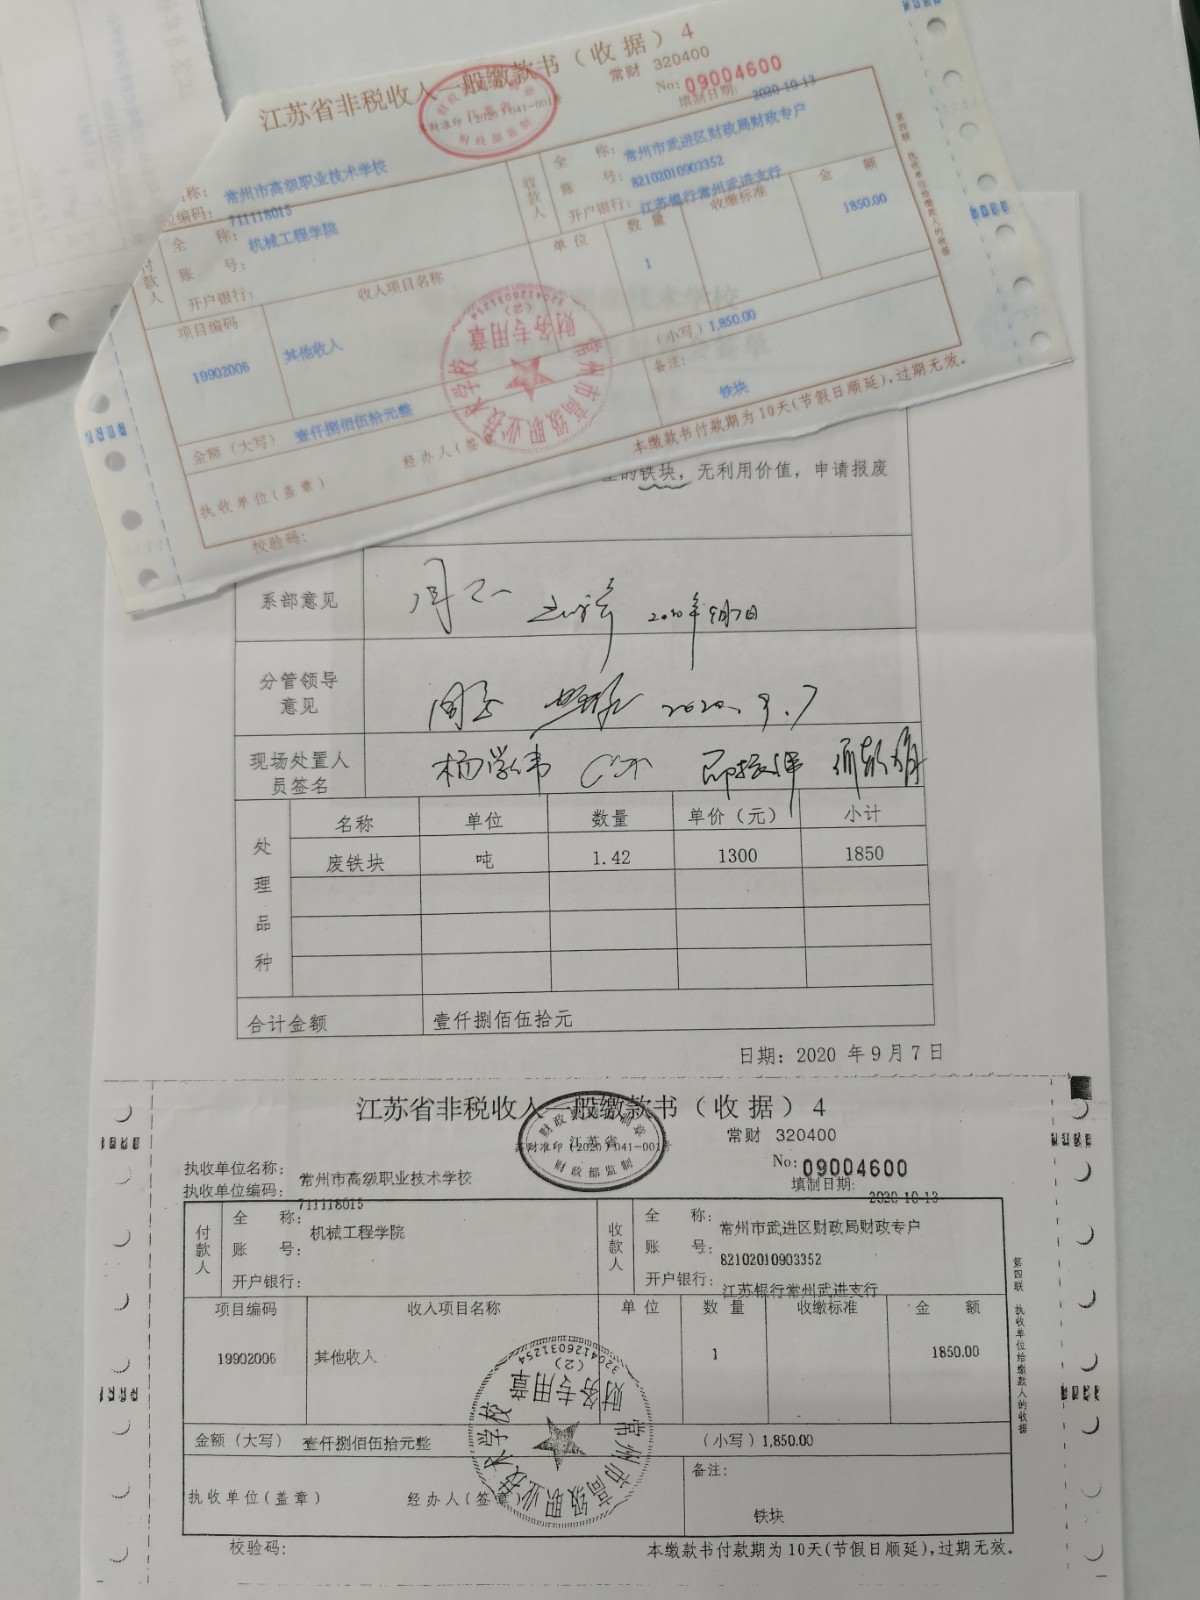 江苏省非税收入一般缴款书（收据）4
常财 320400
No: 09004600
填制日期: 2020-10-13
称: 常州市高级职业技术学校
位编码: 711118015
付款人
全 称: 机械工程学院
账 号:
开户银行:
收款人
全 称: 常州市武进区财政局财政专户
账 号: 82102010903352
开户银行: 江苏银行常州武进支行
项目编码 收入项目名称 单位 数量 收缴标准 金额
19902006 其他收入 1 1850.00
金额（大写） 壹仟捌佰伍拾元整 （小写）1,850.00
执收单位(盖章) 经办人(签章) 备注: 铁块
校验码: 本缴款书付款期为10天(节假日顺延),过期无效。
第四联 执收单位给缴款人的收据
常州市高级职业技术学校
财务专用章
(2)
3204126031254
的铁块，无利用价值，申请报废
系部意见 2020年9月7日
分管领导意见 2020.9.7
现场处置人员签名 杨学伟
处理品种
名称 单位 数量 单价（元） 小计
废铁块 吨 1.42 1300 1850
合计金额 壹仟捌佰伍拾元
日期：2020 年 9 月 7 日
江苏省非税收入一般缴款书（收据）4
江苏省
苏财准印(2020)041-001号
财政部监制
常财 320400
No: 09004600
填制日期: 2020-10-13
执收单位名称: 常州市高级职业技术学校
执收单位编码: 711118015
付款人
全 称: 机械工程学院
账 号:
开户银行:
收款人
全 称: 常州市武进区财政局财政专户
账 号: 82102010903352
开户银行: 江苏银行常州武进支行
项目编码 收入项目名称 单位 数量 收缴标准 金额
19902006 其他收入 1 1850.00
金额（大写） 壹仟捌佰伍拾元整 （小写）1,850.00
执收单位(盖章) 经办人(签章) 备注: 铁块
校验码: 本缴款书付款期为10天(节假日顺延),过期无效。
第四联 执收单位给缴款人的收据
常州市高级职业技术学校
财务专用章
(2)
3204126031254